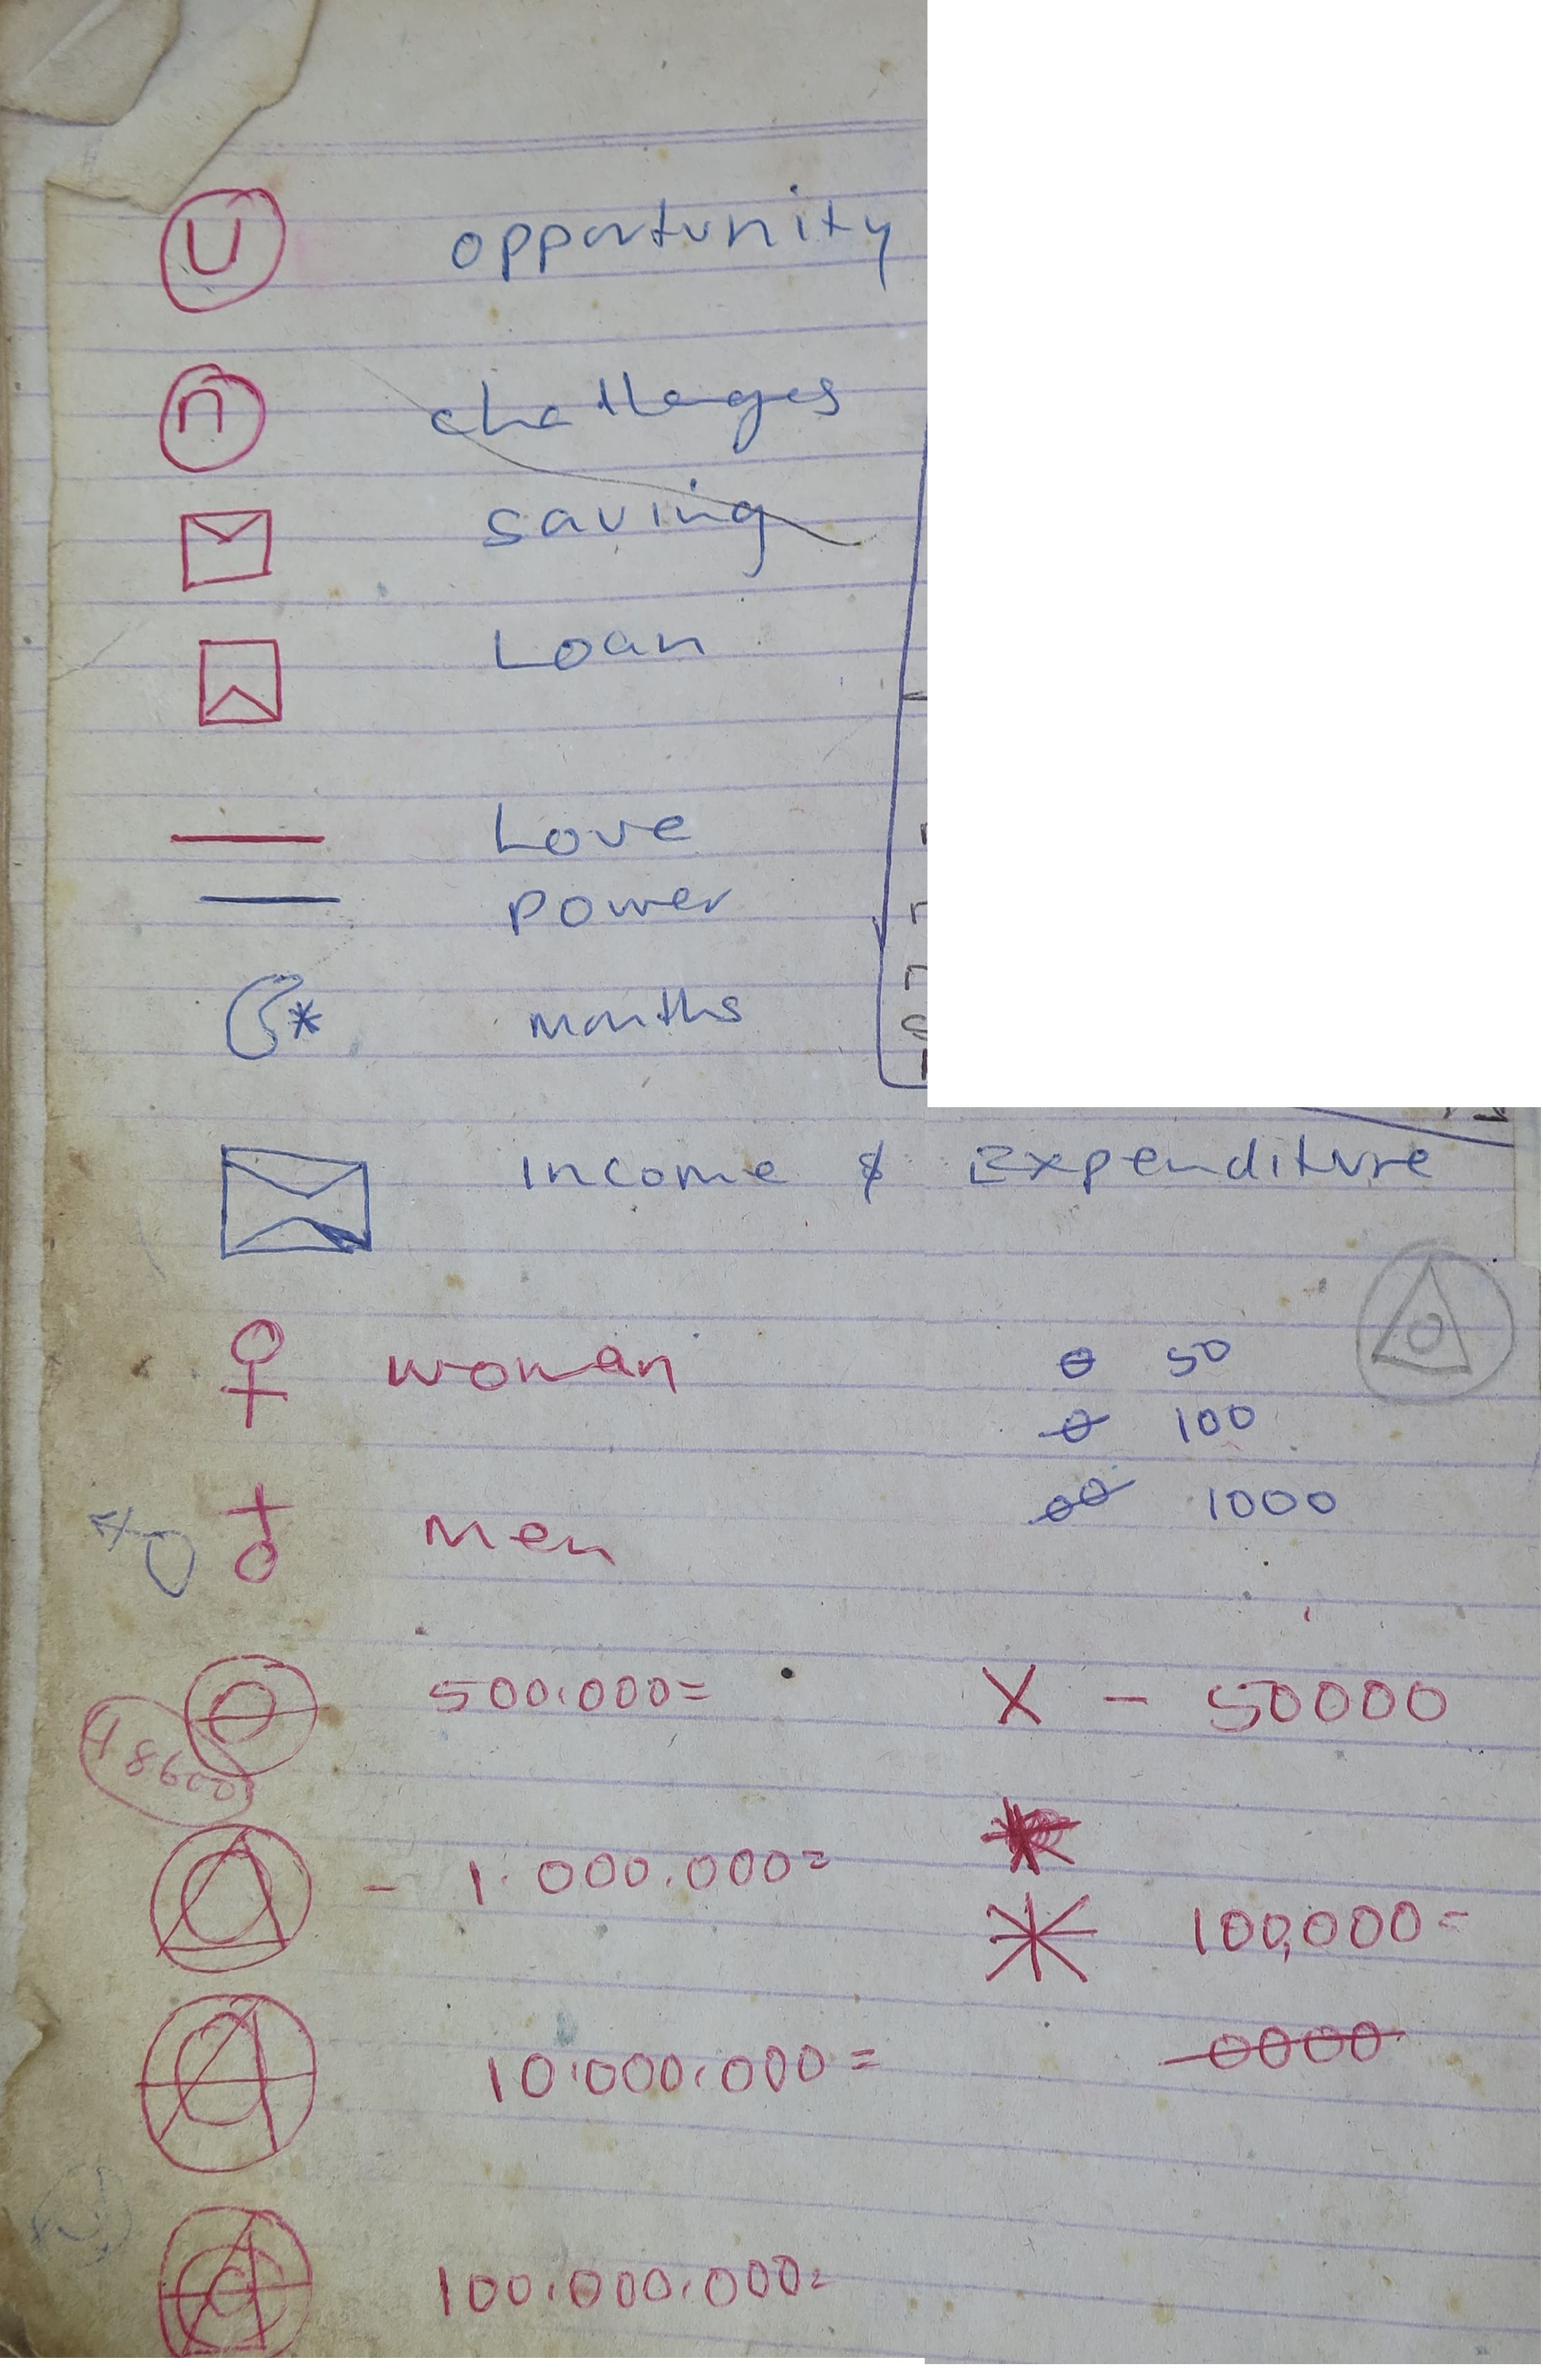 U opportunity
n challenges
saving
Loan
Love
power
months
Income & Expenditure
woman
50
100
1000
Men
500.000=
X - 50000
- 1.000.000=
100,000=
10.000.000=
0000
100.000.000=